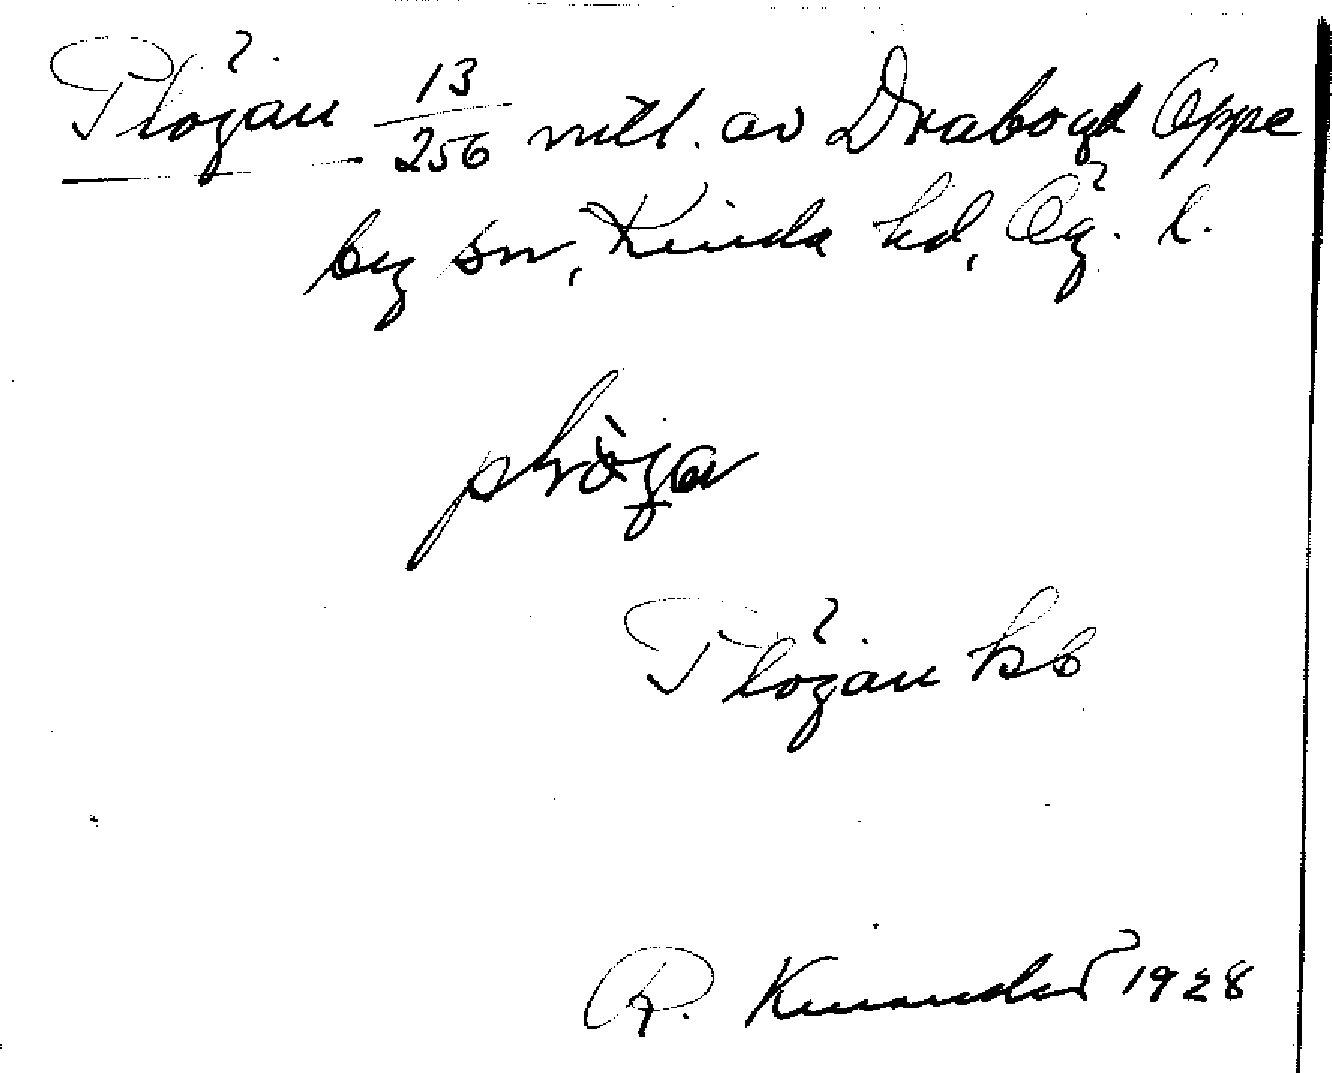 Plögan 13/256 mtl. av Drabogd Oppe
by sn, Kinda hd, Ög. l.
plöga
Plögan kb
R. Kinander 1928